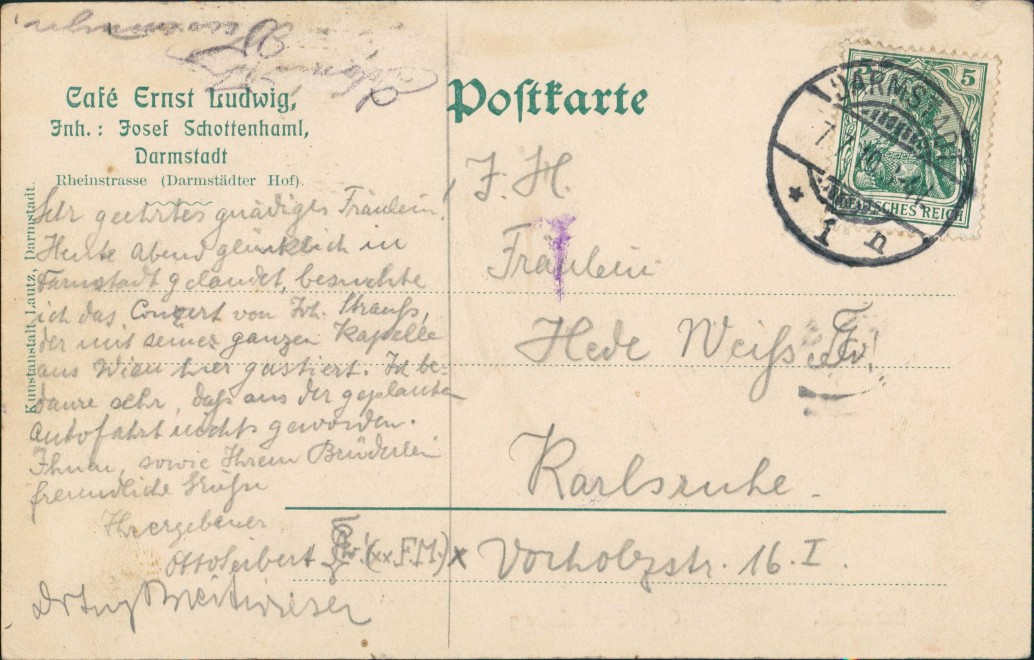 Café Ernst Ludwig,
Inh.: Josef Schottenhaml,
Darmstadt
Rheinstrasse (Darmstädter Hof).
Kunstanstalt Lautz, Darmstadt.
Postkarte
5 5
DARMSTADT
DEUTSCHES REICH
* 1 n
Sehr geehrtes gnädiges Fräulein!
Heute Abend glücklich in
Darmstadt gelandet, besuchte
ich das Conzert von Joh. Strauß,
der mit seiner ganzen Kapelle
aus Wien hier gastiert. Ich be-
daure sehr, daß aus der geplanten
Autofahrt nichts geworden.
Ihnen, sowie Ihrem Brüderlein
freundliche Grüße
Ihr ergebener
Otto Seibert (xx F.M.) x
J. H.
Fräulein
Hede Weiß
Karlsruhe.
Vorholzstr. 16. I.